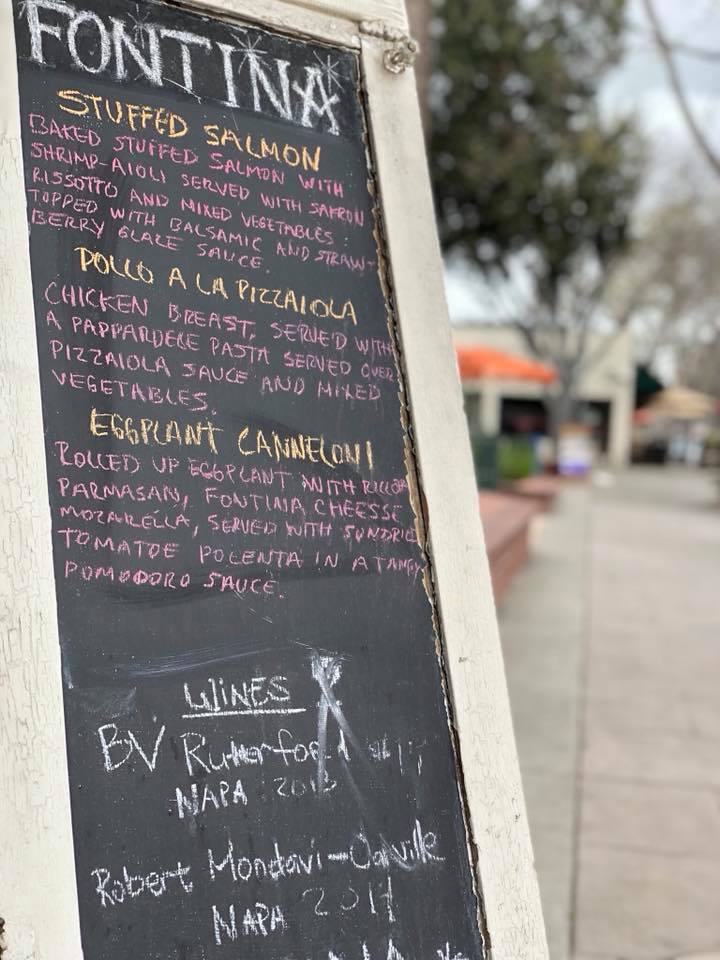 FONTINA
STUFFED SALMON
BAKED STUFFED SALMON WITH
SHRIMP-AIOLI SERVED WITH SAFRON
RISSOTTO AND MIXED VEGETABLES.
TOPPED WITH BALSAMIC AND STRAW-
BERRY GLAZE SAUCE.
POLLO A LA PIZZAIOLA
CHICKEN BREAST, SERVED WITH
A PAPPARDELE PASTA SERVED OVER
PIZZAIOLA SAUCE AND MIXED
VEGETABLES.
EGGPLANT CANNELONI
ROLLED UP EGGPLANT WITH
PARMASAN, FONTINA CHEESSE
MOZARELLA, SERVED WITH
TOMATOE POLENTA IN A TANGY
POMODORO SAUCE.
WINES
BV Rutherford
NAPA
Robert Mondavi-Oakville
NAPA